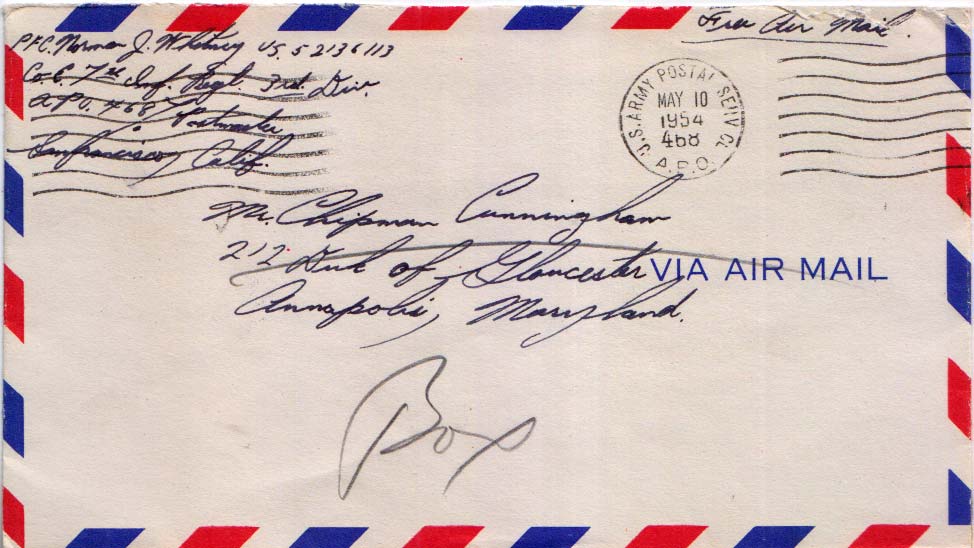 Free Air Mail.
PFC. Norman J. Whitney US. 52136113
Co. C. 7th Inf. Regt. 3rd. Div.
A.P.O. 468 % Postmaster
San Francisco, Calif.
U.S. ARMY POSTAL SERV CE
MAY 10
1954
468
A.P.O.
Mr. Chipman Cunningham
212 Duk of Gloucester
VIA AIR MAIL
Annapolis, Maryland.
Box